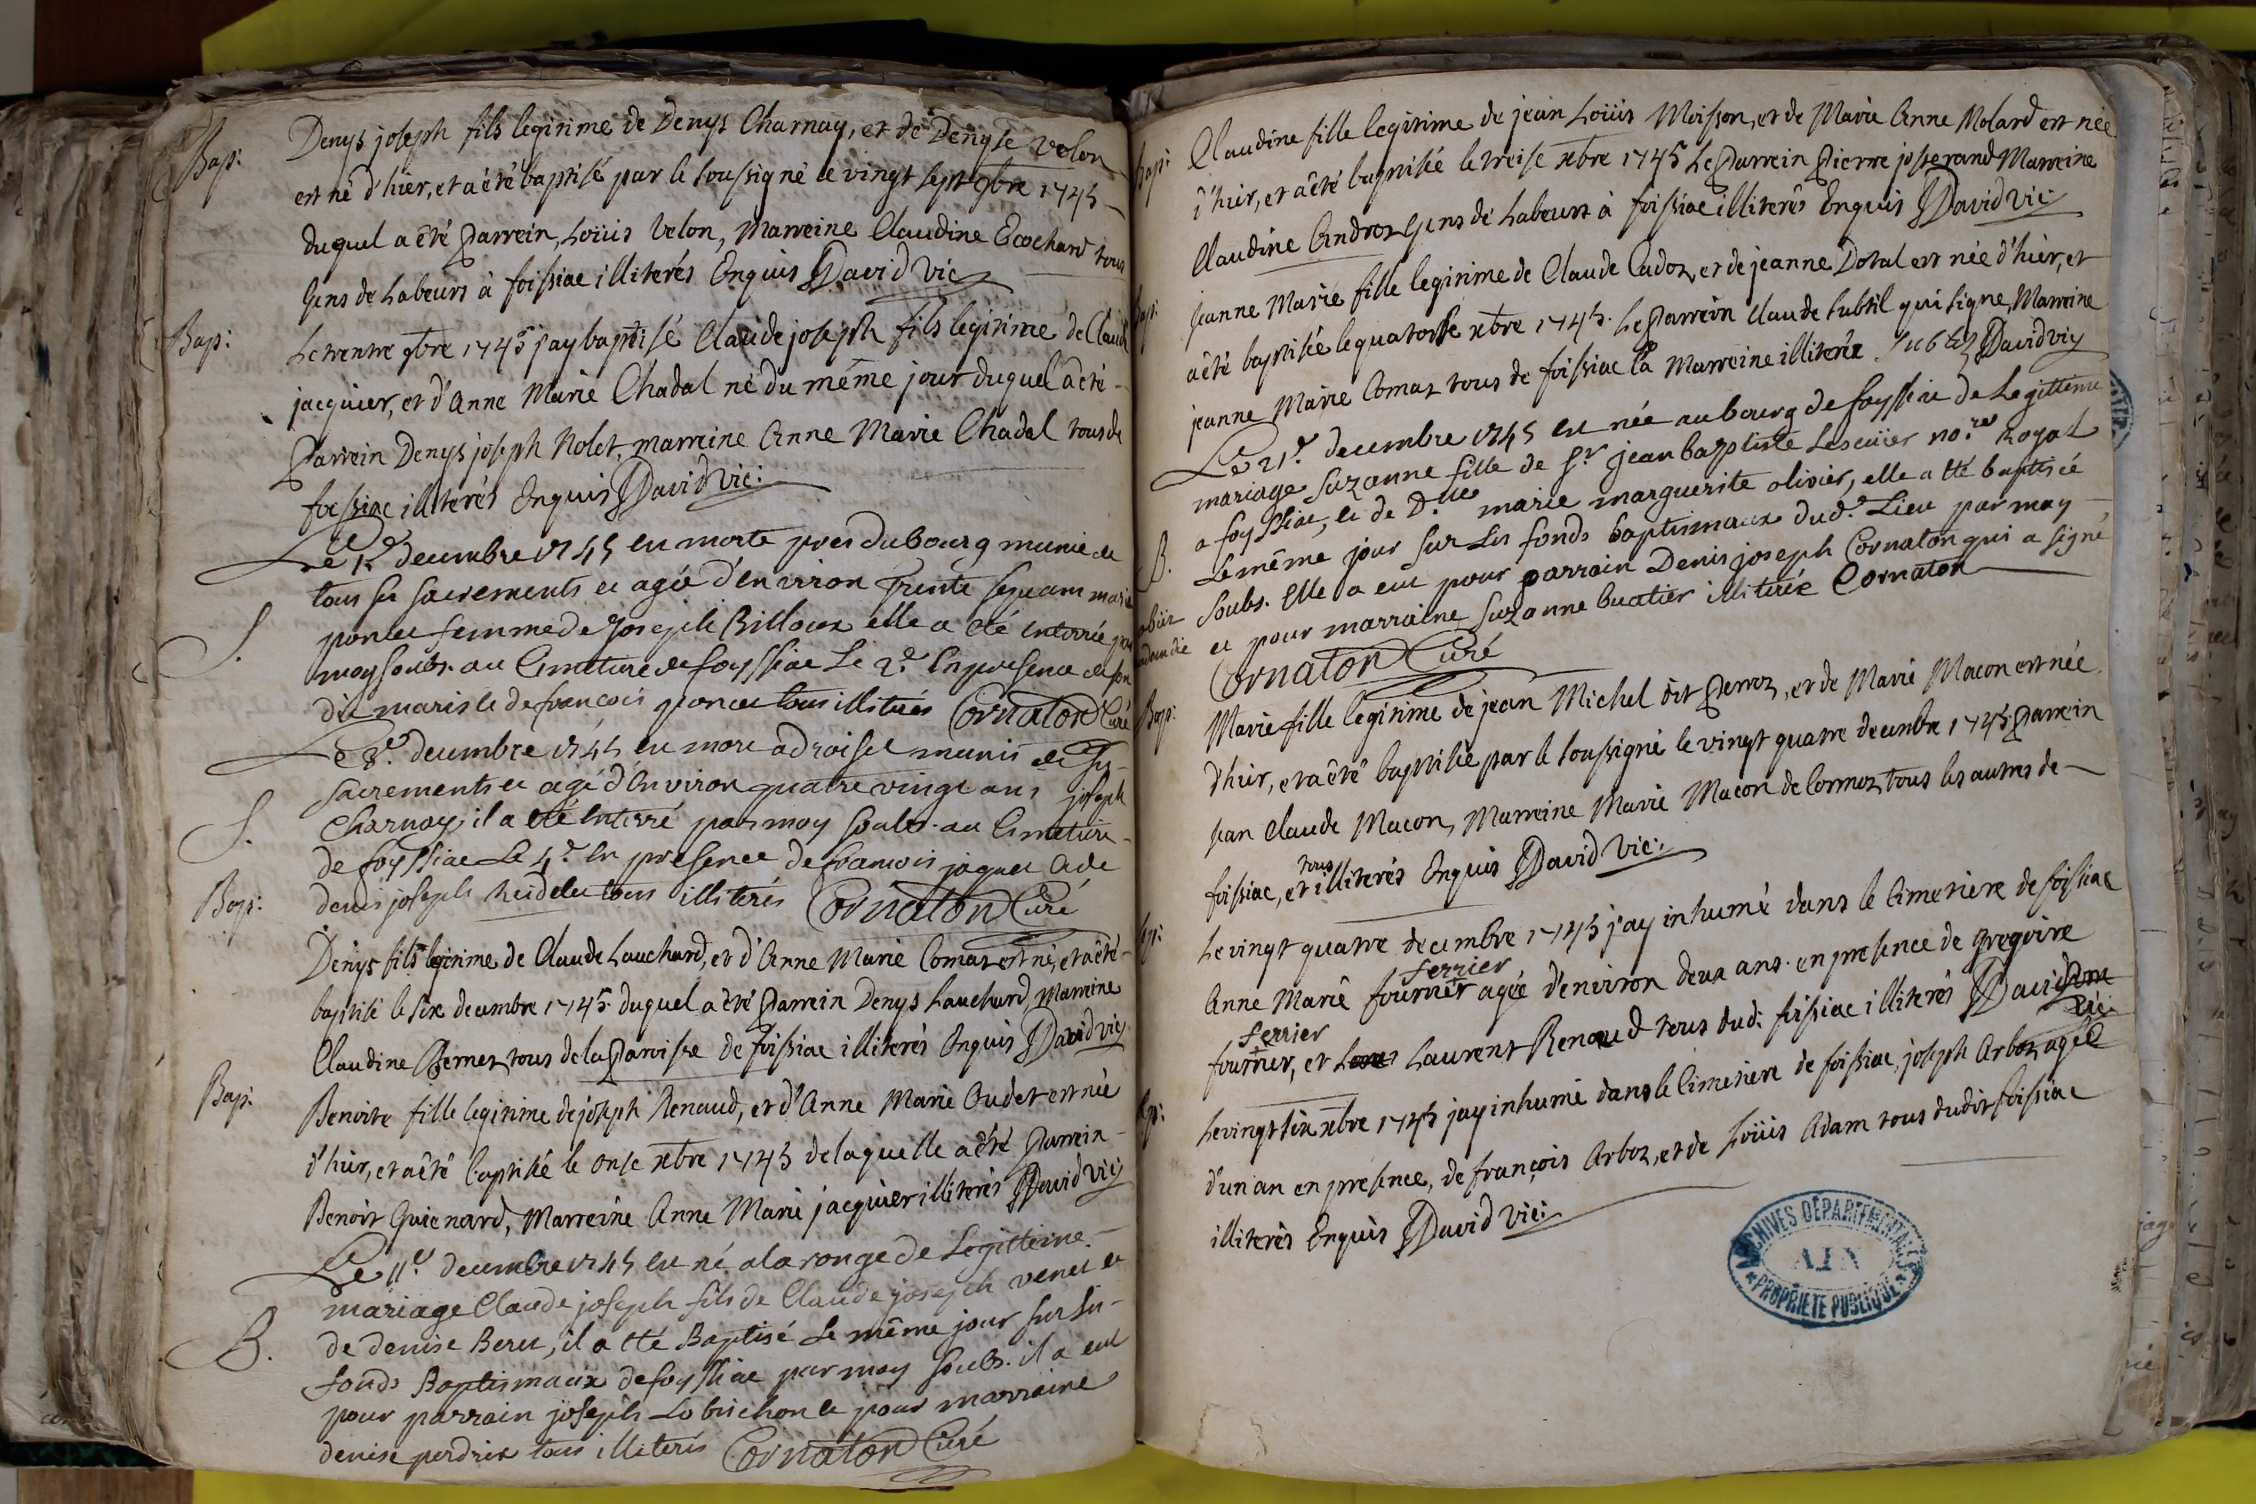 Bap:
Denys joseph fils legitime de Denys Charnay, et de Denyse Velon
est né d'hier, et a été baptisé par le soussigné le vingt sept 9bre 1745
duquel a été Parrein, Loüis Velon, Marreine Claudine Ecochard tous
Gens de Labeurs à foissiac illiterés Enquis David Vic
Bap:
Le trente 9bre 1745 j'ay baptisé Claude joseph fils legitime de Claude
jacquier, et d'Anne Marie Chadal né du même jour duquel a été
Parrein Denys joseph Nolet, marreine Anne Marie Chadal tous de
foissiac illiterés Enquis David Vic:
S.
Le 1er decembre 1745 est morte pres du bourg munie de
tous ses sacrements et agée d'environ trente sept ans marie
poncet femme de Joseph Billoux elle a été enterrée par
moy soubs. au Cimetiere de foyssiac Le 2e. En presence de son
dit maris et de françois poncet tous illiterés Cornaton Curé
S.
Le 3e. decembre 1745 est mort a droiset munis de ses
sacrements et agé d'Environ quatre vingt ans joseph
Charnay, il a eté Enterré par moy soubs. au Cimetiere
de foyssiac Le 4e. En presence de francois jaquet et de
denis joseph tous illiterés Cornaton Curé
Bap:
Denys fils legitime de Claude Lauchard, et d'Anne Marie Comas est né, et a été
baptisé le six decembre 1745 duquel a été Parrein Denys Lauchard, Marreine
Claudine Pernet tous de la Paroisse de foissiac illiterés Enquis David Vic
Bap:
Benoite fille legitime de joseph Renaud, et d'Anne Marie Oudet est née
d'hier, et a été baptisée le onse xbre 1745 de laquelle a été Parrein
Benoit Guienard, Marreine Anne Marie jacquier illiterés David Vic
B.
Le 11e. decembre 1745 est né a la ronge de Legitteime
mariage Claude joseph fils de Claude joseph venet et
de denise Beret, il a eté Baptisé Le même jour sur les
fonds Baptismaux de foyssiac par moy soubs. il a eut
pour parrain joseph Lobrichon et pour marraine
denise perdrix tous illiterés Cornaton Curé
Bap:
Claudine fille legitime de jean Loüis Moisson, et de Marie Anne Molard est née
d'hier, et a été baptisée le treise xbre 1745 Le Parrein Pierre josserand Marreine
Claudine Andrez Gens de Labeurs à foissiac illiterés Enquis David Vic
Bap:
Jeanne Marie fille legitime de Claude Cadoz, et de jeanne Dotal est née d'hier, et
a été baptisée le quatorse xbre 1745. Le Parrein Claude subtil qui signe, Marreine
jeanne Marie Comaz tous de foissiac la Marreine illiterée David Vic
B.
Le 21e. decembre 1745 est née au bourg de foyssiac de Legitteime
mariage Suzanne fille de Sr jean baptiste Lescuier nore Royal
a foyssiac, et de Dlle marie marguerite olivier, elle a eté baptisée
Le même jour sur Les fonds baptismaux dud. Lieu par moy
soubs. Elle a eut pour parrain Denis joseph Cornaton qui a signé
et pour marraine suzanne buatier illiterée Cornaton
Cornaton Curé
Bap:
Marie fille legitime de jean Michel dit Perroz, et de Marie Macon est née
d'hier, et a été baptisée par le soussigné le vingt quatre decembre 1745 Parrein
jean Claude Macon, Marreine Marie Macon de Cormoz tous les autres de
foissiac, et tous illiterés Enquis David Vic:
Sep:
Le vingt quatre decembre 1745 j'ay inhumé dans le Cimetiere de foissiac
ferrier
Anne Marie fournier agée d'environ deux ans. en presence de gregoire
ferrier
fournier, et Laurent Renaud tous dud. foissiac illiterés David
Vic:
Sep:
Le vingt six xbre 1745 j'ay inhumé dans le Cimetiere de foissiac, joseph Arboz agée
d'un an en presence, de françois Arboz, et de Loüis Adam tous dudit foissiac
illiterés Enquis David Vic:
ARCHIVES DÉPARTEMENTALES
AIN
PROPRIÉTÉ PUBLIQUE